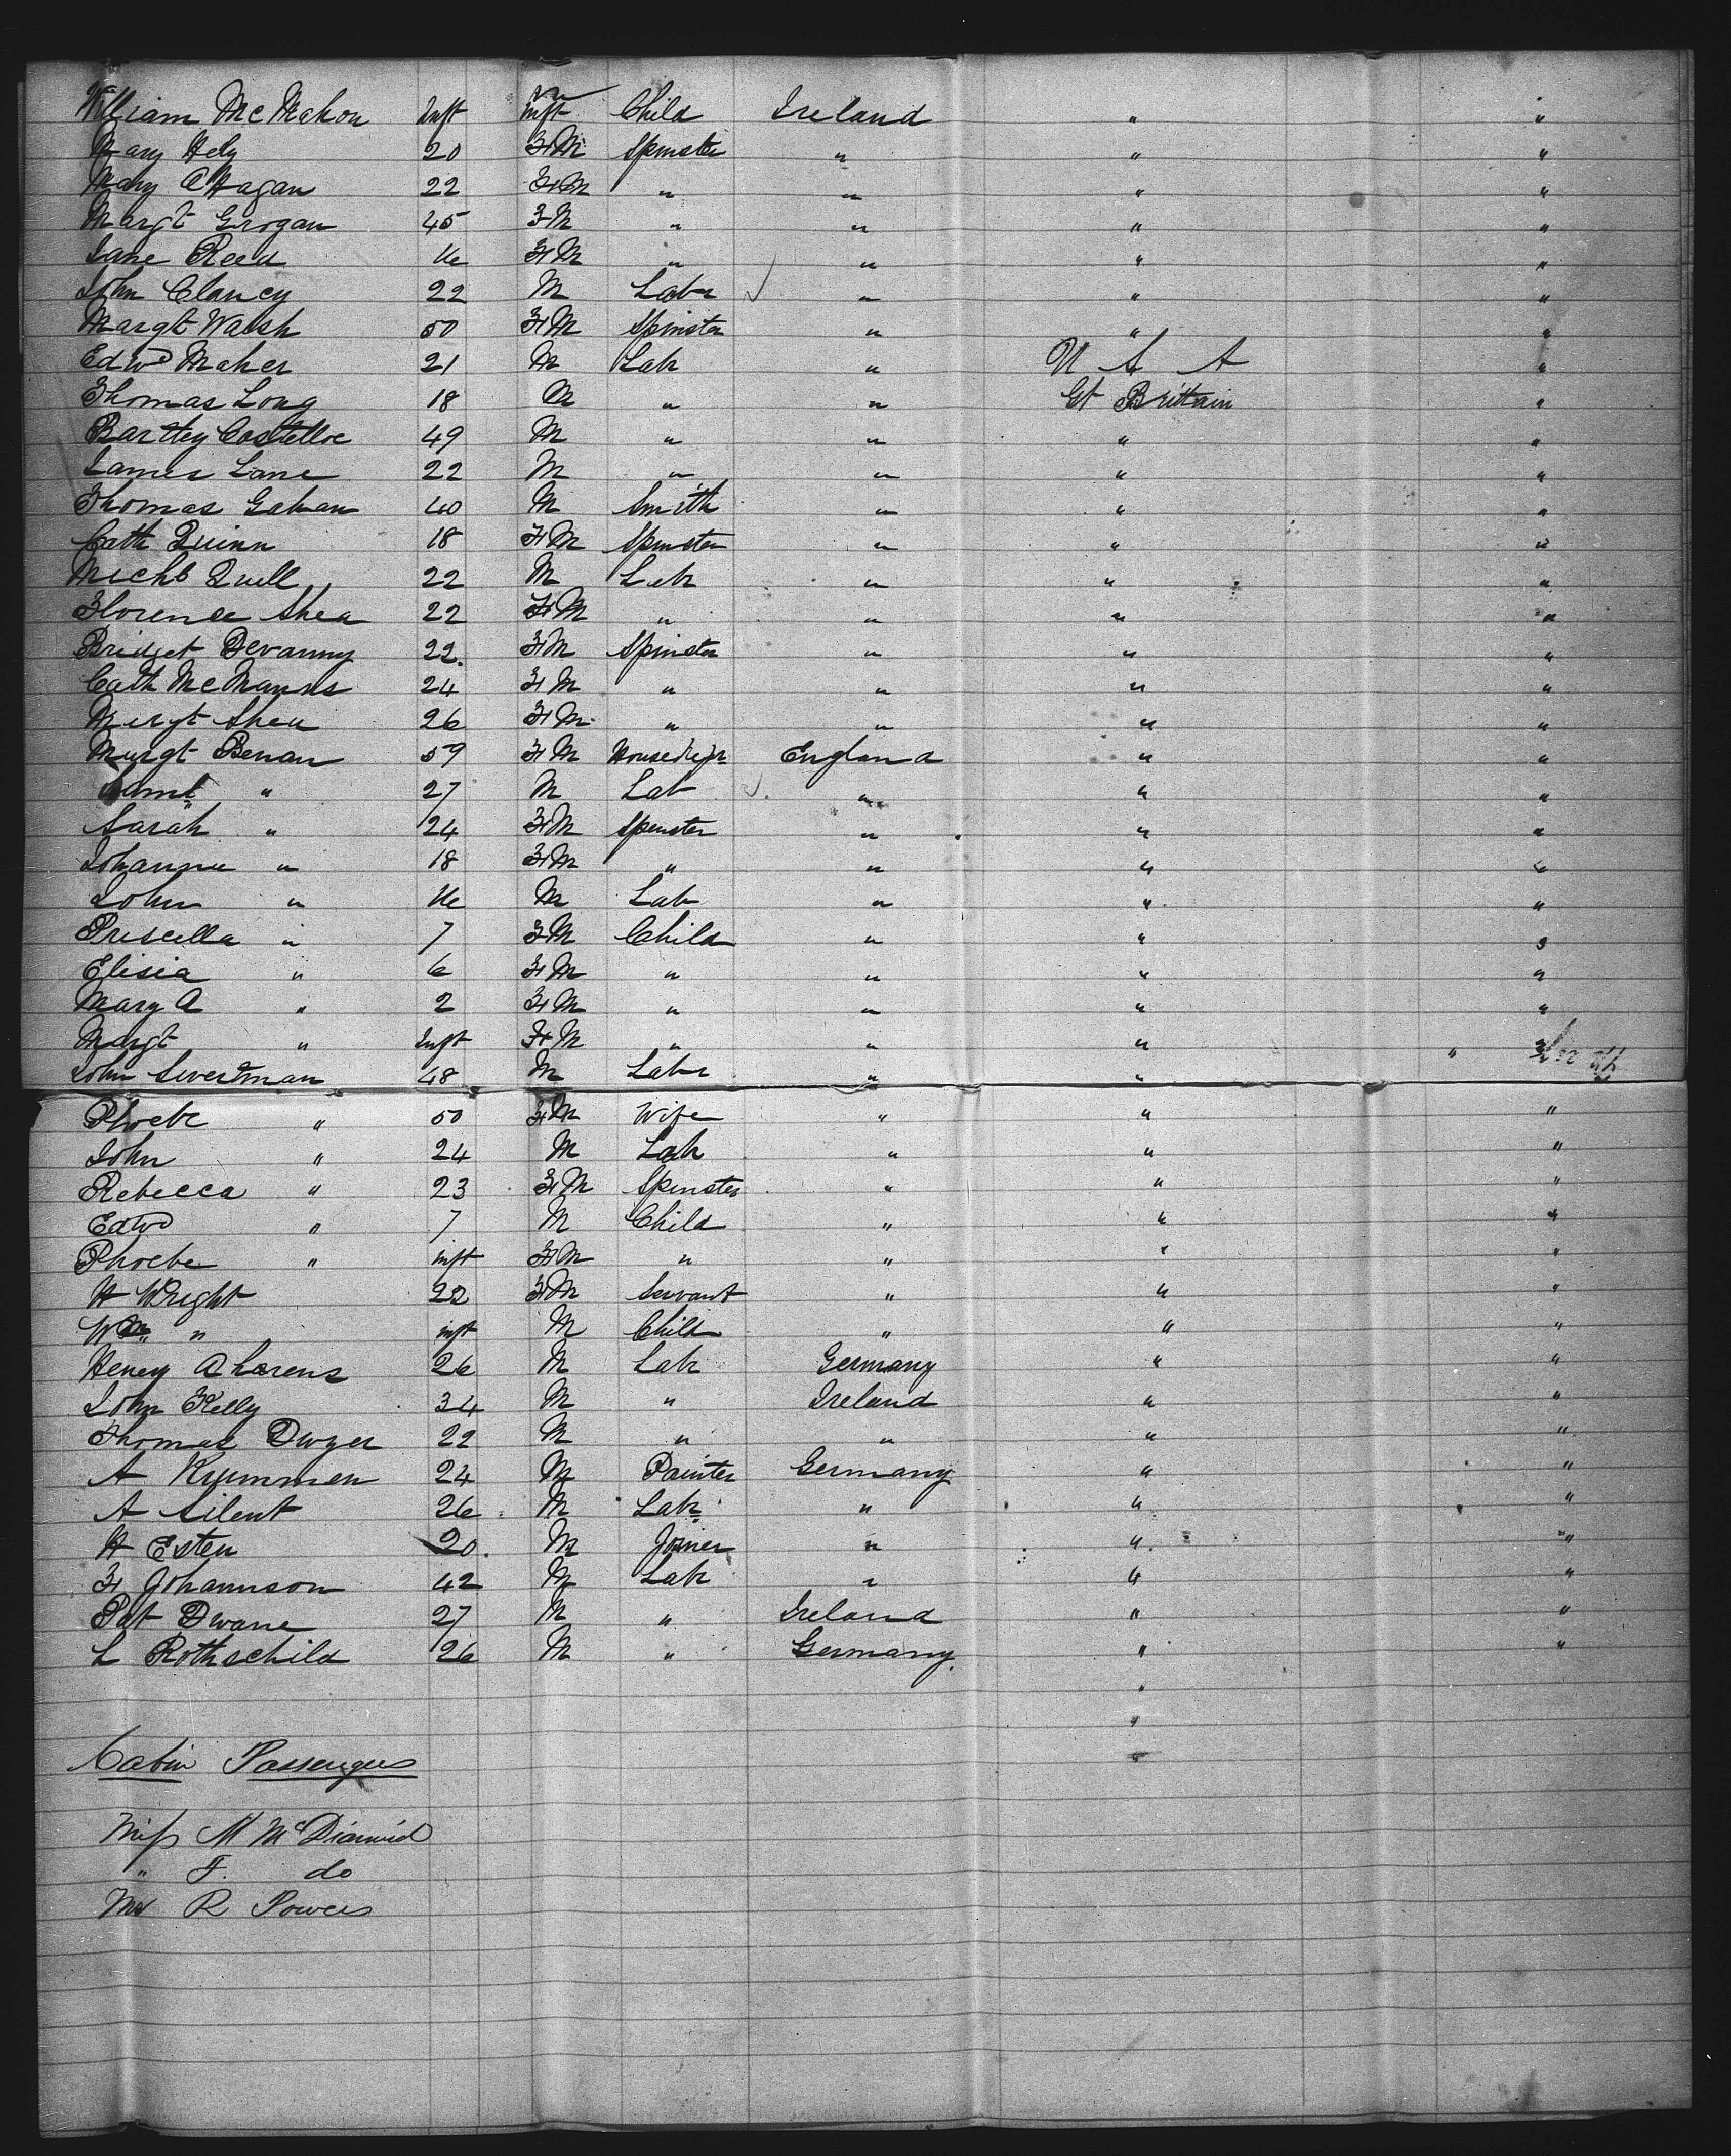 William McMahon Inft Inft Child Ireland " "
Mary Hely 20 FM Spinster " " "
Mary O'Hagan 22 FM " " " "
Margt Grogan 45 FM " " " "
Jane Reed 16 FM " " " "
John Clancy 22 M Labr " " "
Margt Walsh 50 FM Spinster " " "
Edwd Maher 21 M Labr " U S A "
Thomas Long 18 M " " Gt Brittain "
Bartley Costelloe 49 M " " " "
James Lane 22 M " " " "
Thomas Gahan 40 M Smith " " "
Cath Quinn 18 FM Spinster " " "
Michl Quill 22 M Labr " " "
Florence Shea 22 FM " " " "
Bridget Devanny 22 FM Spinster " " "
Cath McManus 24 FM " " " "
Margt Shea 26 FM " " " "
Margt Benan 59 FM Housekepr England " "
Saml " 27 M Lab " " "
Sarah " 24 FM Spinster " " "
Johanna " 18 FM " " " "
John " 16 M Lab " " "
Priscella " 7 FM Child " " "
Elisia " 6 FM " " " "
Mary A " 2 FM " " " "
Margt " Inft FM " " " "
John Silverman 48 M Labr " "
Phoebe " 50 FM Wife " " "
John " 24 M Labr " " "
Rebecca " 23 FM Spinster " " "
Edwd " 7 M Child " " "
Phoebe " inft FM " " " "
H Wright 22 FM Servant " " "
Wm " inft M Child " " "
Heney Ahorens 26 M Labr Germany " "
John Kelly 34 M " Ireland " "
Thomas Dwyer 22 M " " " "
A Krummen 24 M Painter Germany " "
A Silent 26 M Labr " " "
H Esten 20 M Joiner " " "
F Johannson 42 M Labr " " "
Pat Dwane 27 M " Ireland " "
L Rothschild 26 M " Germany " "
"
"
"
Cabin Passengers
Miss M McDiarmid
" F. do
Mr R Powers